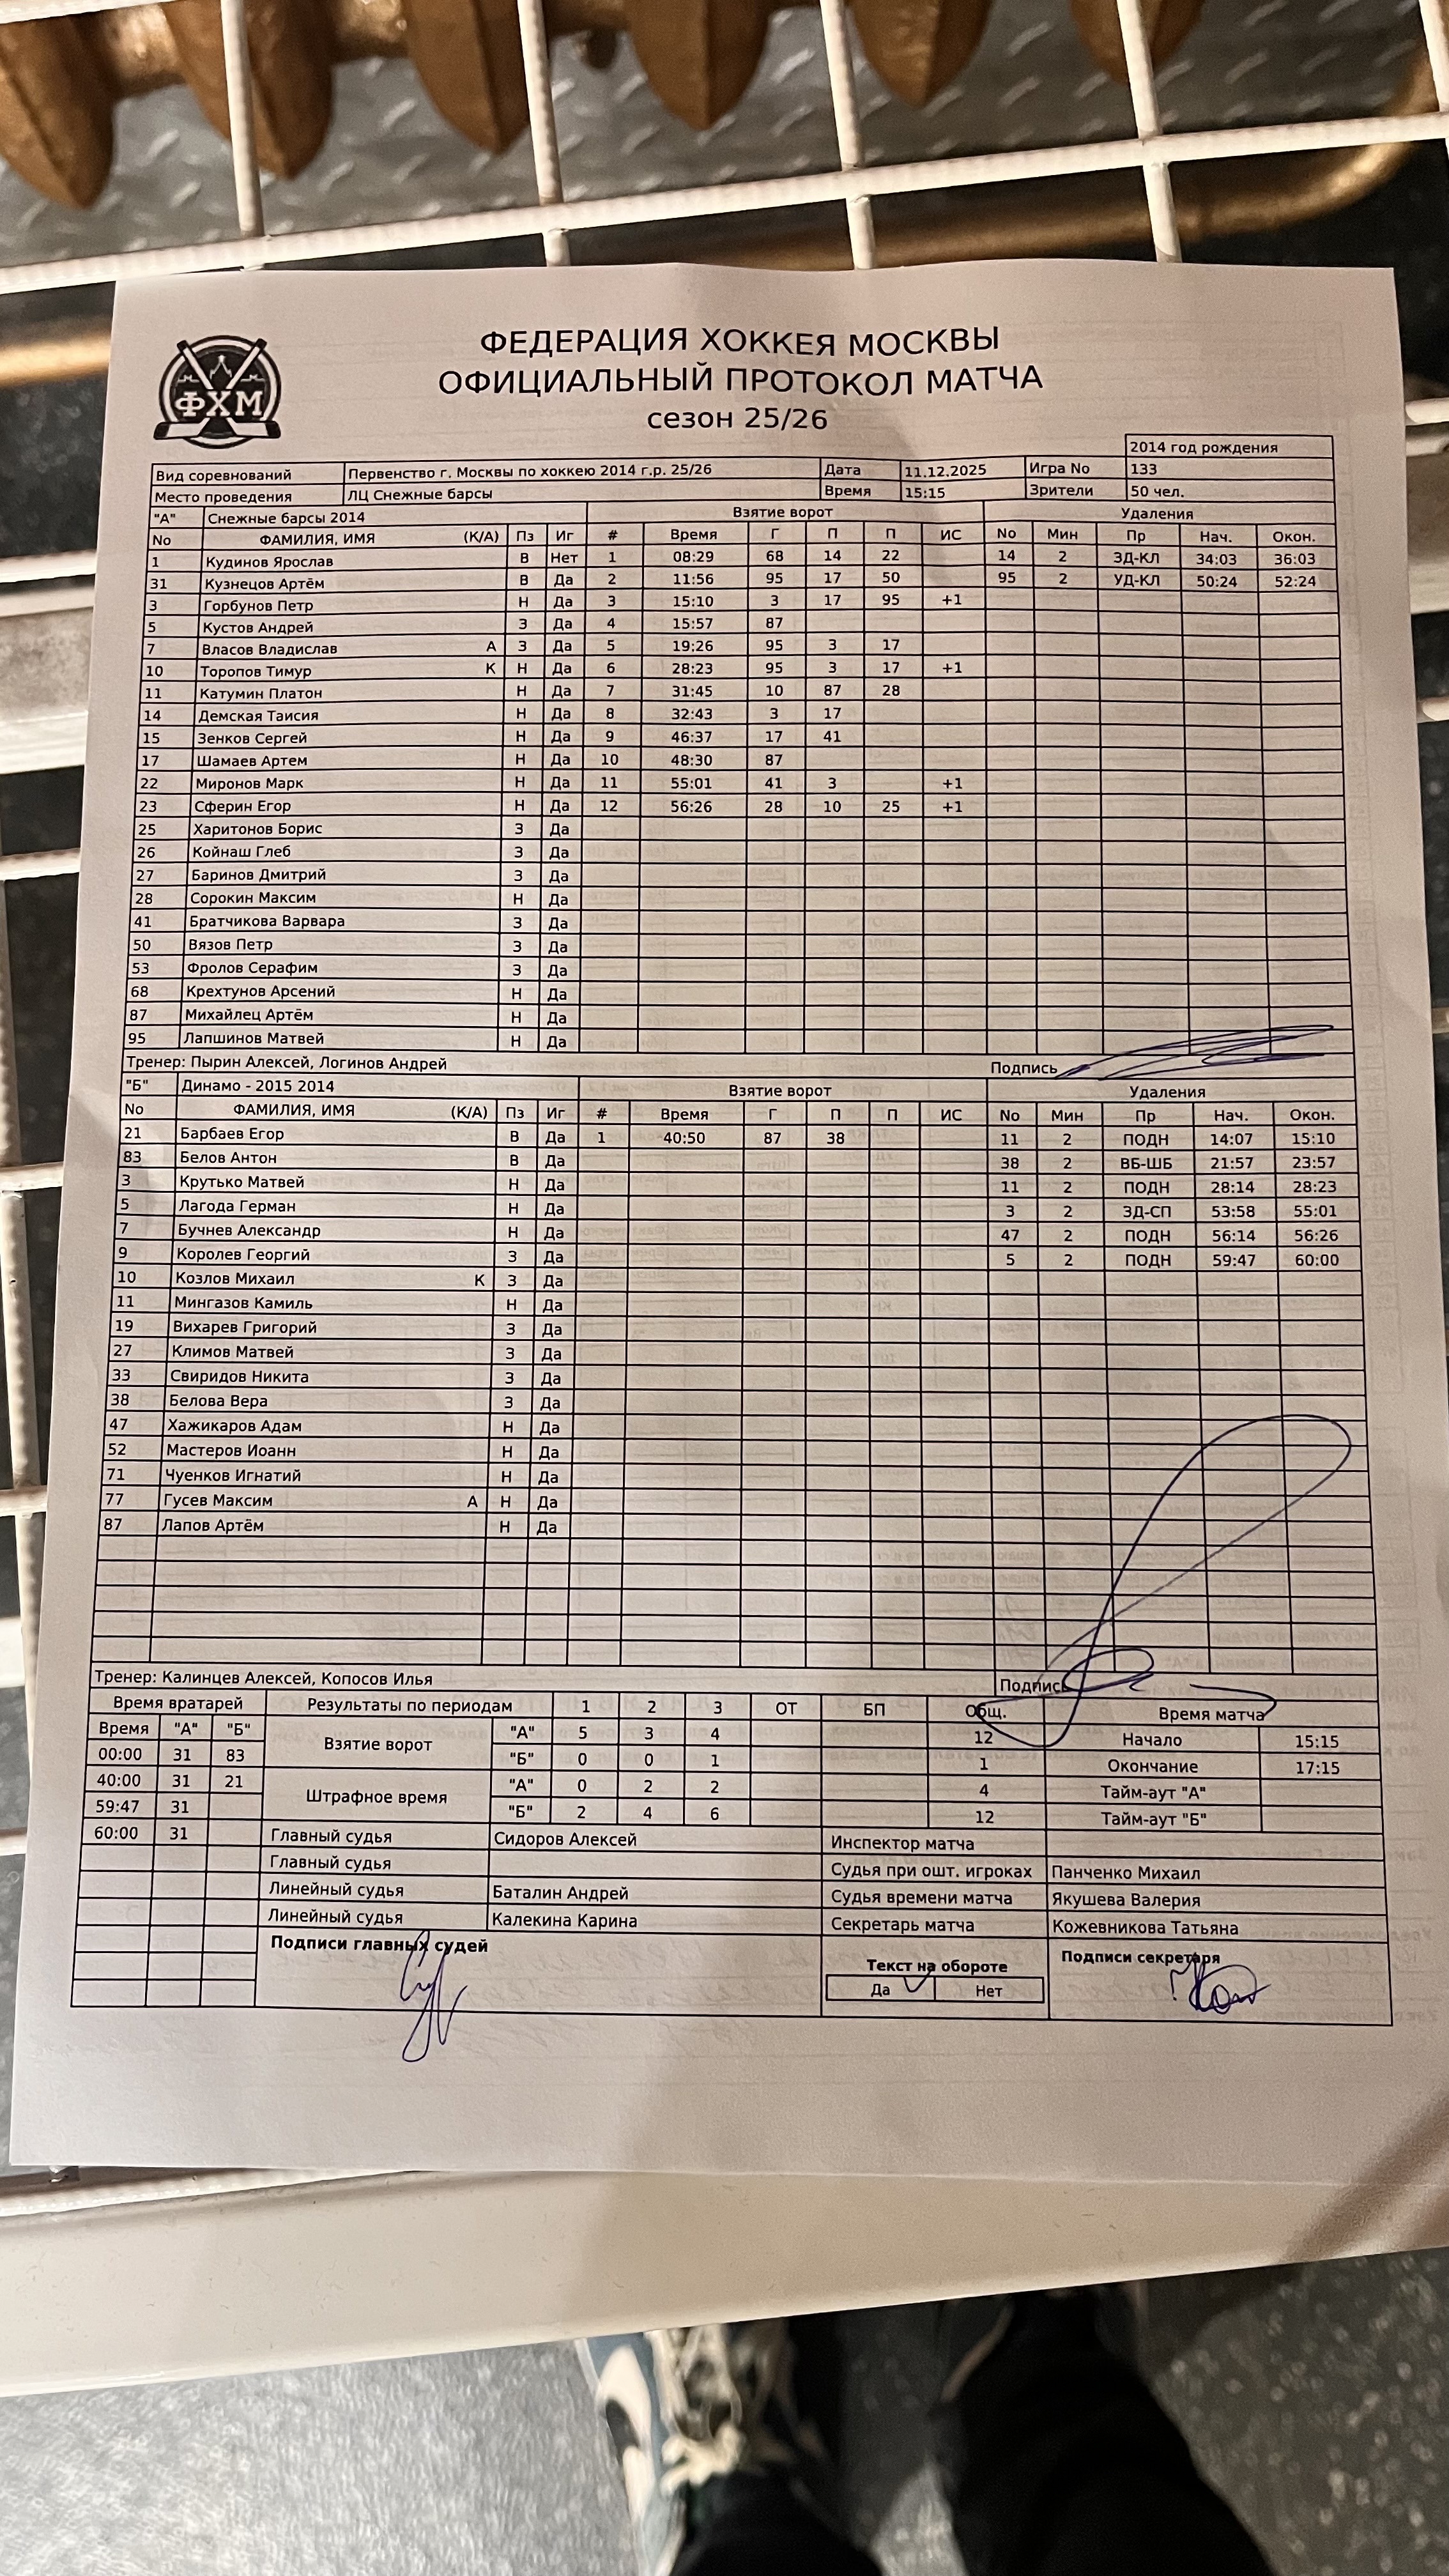 ФЕДЕРАЦИЯ ХОККЕЯ МОСКВЫ
ОФИЦИАЛЬНЫЙ ПРОТОКОЛ МАТЧА
сезон 25/26
ФХМ
2014 год рождения
Вид соревнований Первенство г. Москвы по хоккею 2014 г.р. 25/26 Дата 11.12.2025 Игра No 133
Место проведения ЛЦ Снежные барсы Время 15:15 Зрители 50 чел.
"А" Снежные барсы 2014 Взятие ворот Удаления
No ФАМИЛИЯ, ИМЯ (К/А) Пз Иг # Время Г П П ИС No Мин Пр Нач. Окон.
1 Кудинов Ярослав В Нет 1 08:29 68 14 22 14 2 ЗД-КЛ 34:03 36:03
31 Кузнецов Артём В Да 2 11:56 95 17 50 95 2 УД-КЛ 50:24 52:24
3 Горбунов Петр Н Да 3 15:10 3 17 95 +1
5 Кустов Андрей З Да 4 15:57 87
7 Власов Владислав А З Да 5 19:26 95 3 17
10 Торопов Тимур К Н Да 6 28:23 95 3 17 +1
11 Катумин Платон Н Да 7 31:45 10 87 28
14 Демская Таисия Н Да 8 32:43 3 17
15 Зенков Сергей Н Да 9 46:37 17 41
17 Шамаев Артем Н Да 10 48:30 87
22 Миронов Марк Н Да 11 55:01 41 3 +1
23 Сферин Егор Н Да 12 56:26 28 10 25 +1
25 Харитонов Борис З Да
26 Койнаш Глеб З Да
27 Баринов Дмитрий З Да
28 Сорокин Максим Н Да
41 Братчикова Варвара З Да
50 Вязов Петр З Да
53 Фролов Серафим З Да
68 Крехтунов Арсений Н Да
87 Михайлец Артём Н Да
95 Лапшинов Матвей Н Да
Тренер: Пырин Алексей, Логинов Андрей Подпись
"Б" Динамо - 2015 2014 Взятие ворот Удаления
No ФАМИЛИЯ, ИМЯ (К/А) Пз Иг # Время Г П П ИС No Мин Пр Нач. Окон.
21 Барбаев Егор В Да 1 40:50 87 38 11 2 ПОДН 14:07 15:10
83 Белов Антон В Да 38 2 ВБ-ШБ 21:57 23:57
3 Крутько Матвей Н Да 11 2 ПОДН 28:14 28:23
5 Лагода Герман Н Да 3 2 ЗД-СП 53:58 55:01
7 Бучнев Александр Н Да 47 2 ПОДН 56:14 56:26
9 Королев Георгий З Да 5 2 ПОДН 59:47 60:00
10 Козлов Михаил К З Да
11 Мингазов Камиль Н Да
19 Вихарев Григорий З Да
27 Климов Матвей З Да
33 Свиридов Никита З Да
38 Белова Вера З Да
47 Хажикаров Адам Н Да
52 Мастеров Иоанн Н Да
71 Чуенков Игнатий Н Да
77 Гусев Максим А Н Да
87 Лапов Артём Н Да
Тренер: Калинцев Алексей, Копосов Илья Подпись
Время вратарей Результаты по периодам 1 2 3 ОТ БП Общ. Время матча
Время "А" "Б" Взятие ворот "А" 5 3 4 12 Начало 15:15
00:00 31 83 "Б" 0 0 1 1 Окончание 17:15
40:00 31 21 Штрафное время "А" 0 2 2 4 Тайм-аут "А"
59:47 31 "Б" 2 4 6 12 Тайм-аут "Б"
60:00 31 Главный судья Сидоров Алексей Инспектор матча
Главный судья Судья при ошт. игроках Панченко Михаил
Линейный судья Баталин Андрей Судья времени матча Якушева Валерия
Линейный судья Калекина Карина Секретарь матча Кожевникова Татьяна
Подписи главных судей Текст на обороте Подписи секретаря
Да Нет